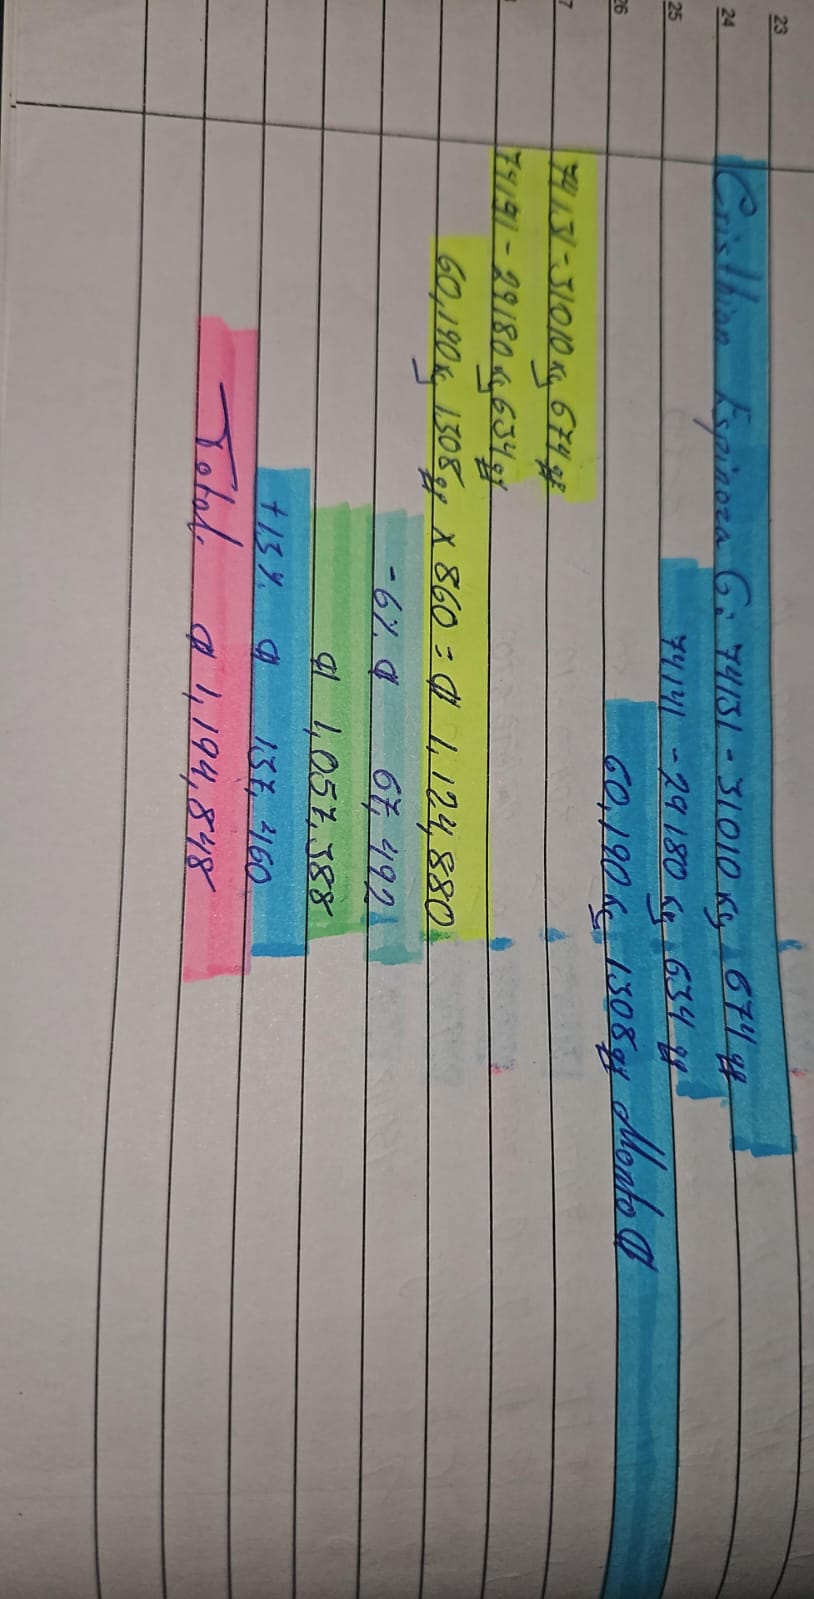 23
24 Cristhian Espinoza G: 74131 - 31010 Kg 674 qq
25 74141 - 29180 Kg 634 qq
26 60,190 Kg 1308 qq Monto ₡
7 74131 - 31010 Kg 674 qq
74191 - 29180 Kg 634 qq
60,190 Kg 1308 qq x 860 = ₡ 1,124,880
-6% ₡ 67,492
₡ 1,057,388
+13% ₡ 137,460
Total. ₡ 1,194,848